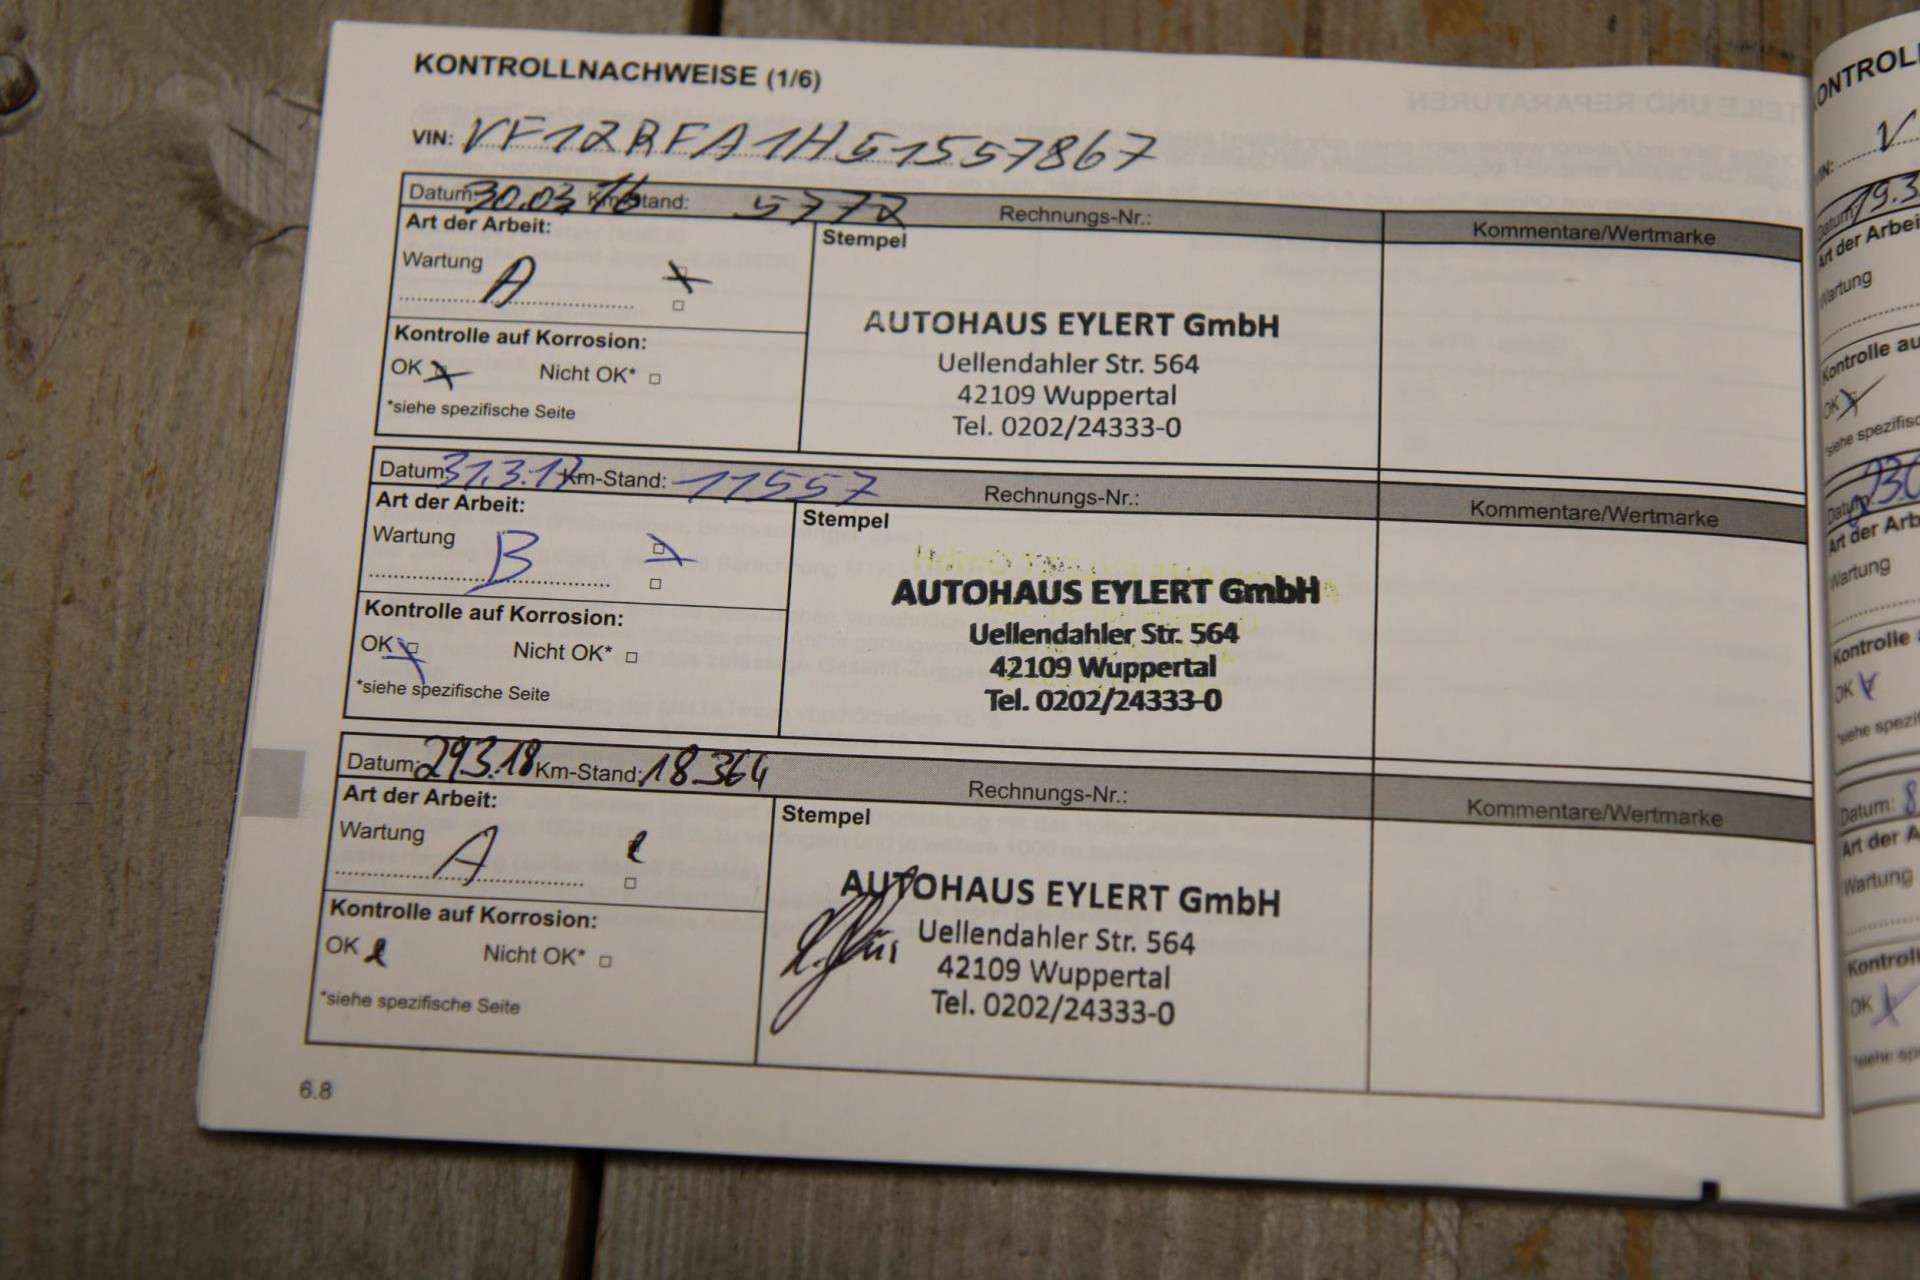 KONTROLLNACHWEISE (1/6)
VIN: VF1ZRFA1H51557867
Datum: 30.03.16 Km-Stand: 5772 Rechnungs-Nr.: Kommentare/Wertmarke
Art der Arbeit: Stempel
Wartung A
Kontrolle auf Korrosion:
OK Nicht OK*
*siehe spezifische Seite
AUTOHAUS EYLERT GmbH
Uellendahler Str. 564
42109 Wuppertal
Tel. 0202/24333-0
Datum: 31.3.17 Km-Stand: 11557 Rechnungs-Nr.: Kommentare/Wertmarke
Art der Arbeit: Stempel
Wartung B
Kontrolle auf Korrosion:
OK Nicht OK*
*siehe spezifische Seite
AUTOHAUS EYLERT GmbH
Uellendahler Str. 564
42109 Wuppertal
Tel. 0202/24333-0
Datum: 29.3.18 Km-Stand: 18364 Rechnungs-Nr.: Kommentare/Wertmarke
Art der Arbeit: Stempel
Wartung A
Kontrolle auf Korrosion:
OK Nicht OK*
*siehe spezifische Seite
AUTOHAUS EYLERT GmbH
Uellendahler Str. 564
42109 Wuppertal
Tel. 0202/24333-0
6.8
VIN: V
Datum: 19.3
Wartung
Kontrolle au
OK
Datum:
Wartung
Kontrolle
OK
Datum: 8
Wartung
OK